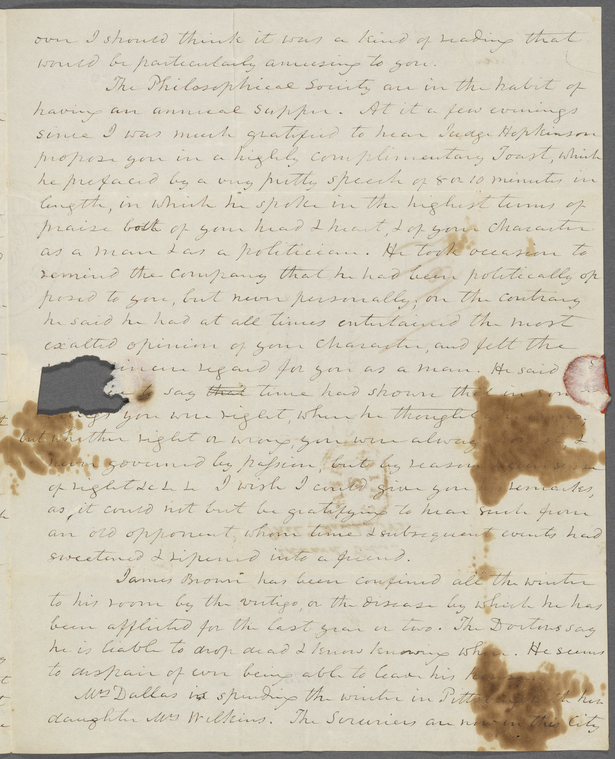 over I should think it was a kind of reading that
would be particularly amusing to you.
The Philosophical Society are in the habit of
having an annual supper. At it a few evenings
since I was much gratified to hear Judge Hopkinson
propose you in a highly complimentary Toast, which
he prefaced by a very pretty speech of 8 or 10 minutes in
length, in which he spoke in the highest terms of
praise both of your head & heart, & of your character
as a man & as a politician. He took occasion to
remind the company that he had been politically op
posed to you, but never personally, on the contrary
he said he had at all times entertained the most
exalted opinion of your character, and felt the
regard for you as a man. He said
say that time had shown that in
you were right, when he thought
but whether right or wrong, you were always
governed by passion, but by reason
of right &c &c &c. I wish I could give you remarks,
as it could not but be gratifying to hear such from
an old opponent, whom time & subsequent events had
sweetened & ripened into a friend.
James Brown has been confined all the winter
to his room by the vertigo, or the disease by which he has
been afflicted for the last year or two. The Doctors say
he is liable to drop dead & knew knowing when. He seems
to despair of ever being able to leave his
Mrs Dallas is spending the winter in with her
daughter Mrs Wilkins. The Seruriers are now in this City